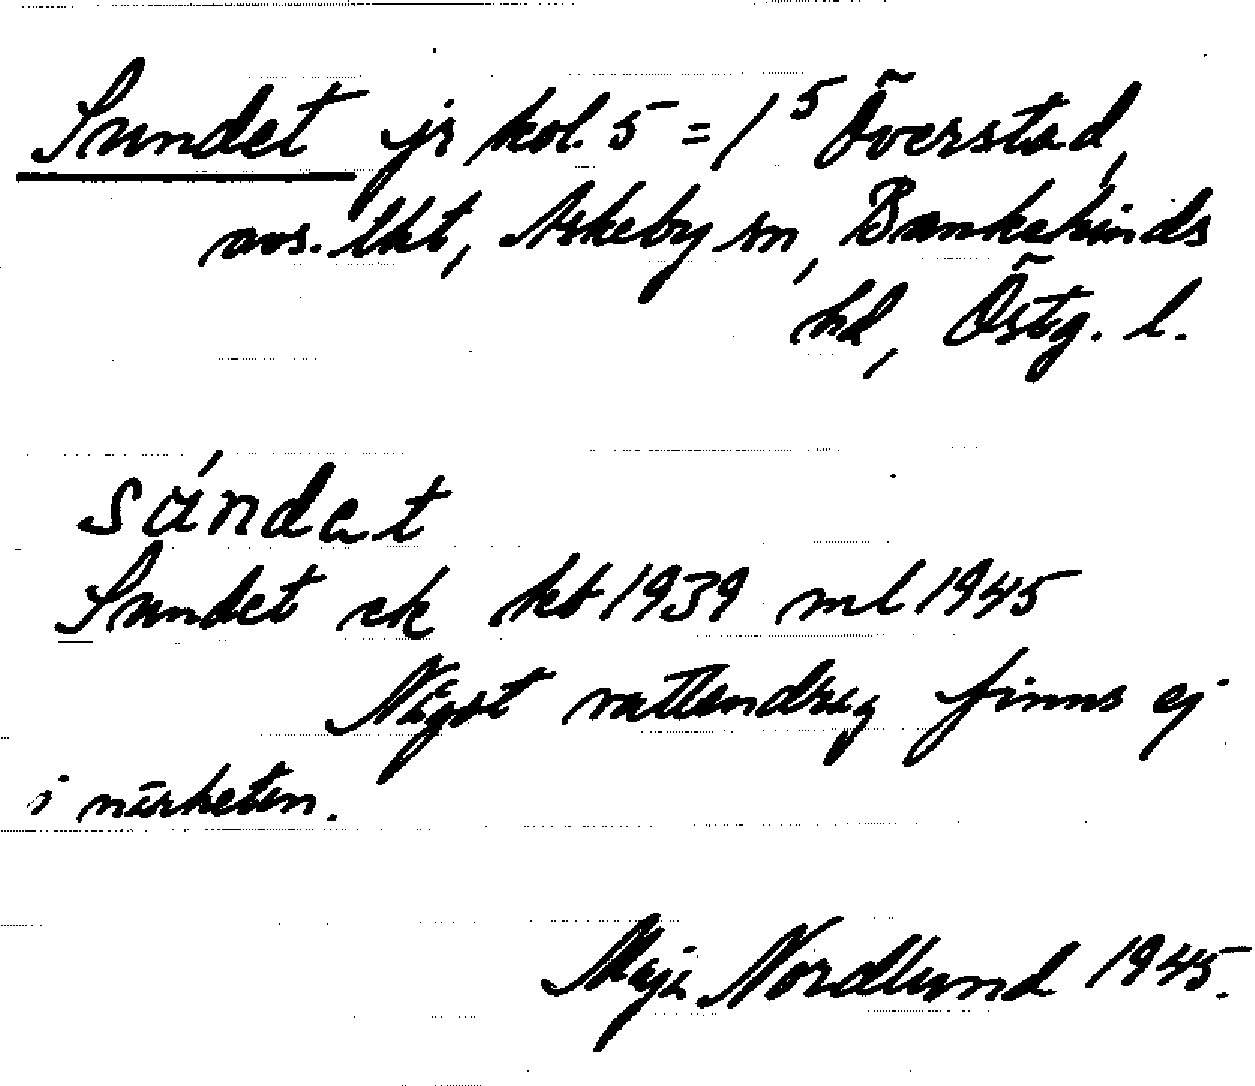 Sundet jr kol. 5 = 1⁵ Överstad,
avs. lht, Askeby sn, Bankekinds
hd, Östg. l.
sándat
Sundet ek kb 1939 ml 1945
Något vattendrag finns ej
i närheten.
Maja Nordlund 1945.